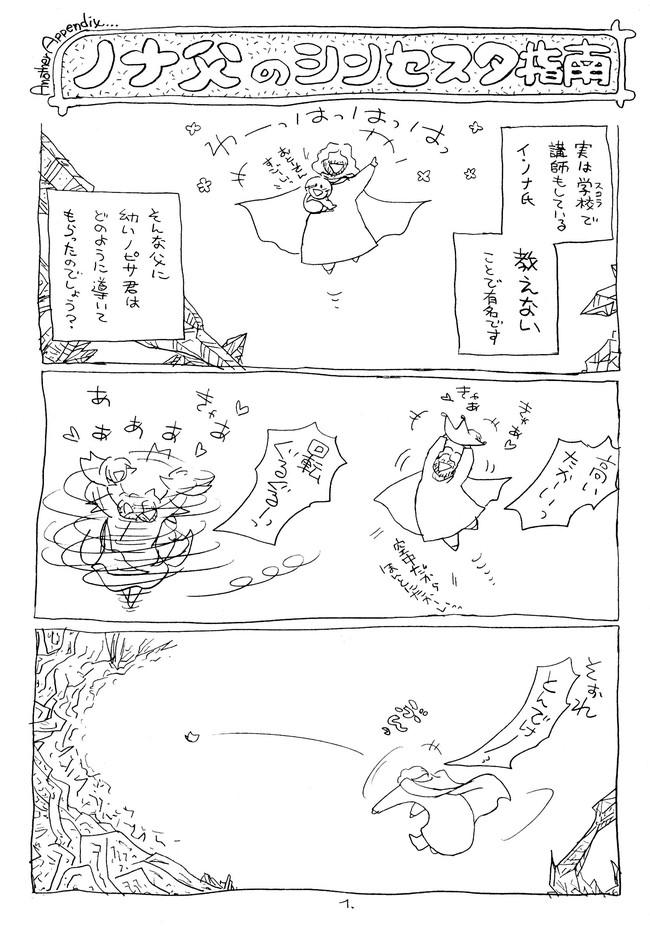 Another Appendix...
ノナ父のシンセスタ指南
実は学校で
スコラ
講師もしている
イソナ氏
教えない
ことで有名です
わーっはっはっはっ
おとーさん
すごーい
そんな父に
幼いノピサ君は
どのように導いて
もらったのでしょう?
高い
だかーいっ
きゃあ
きゃあ
空中だから
ほんとに高かーい
回転
ぐるぐるーっ
きゃあ
あああ
あ
そおれ
とんでけ
1.